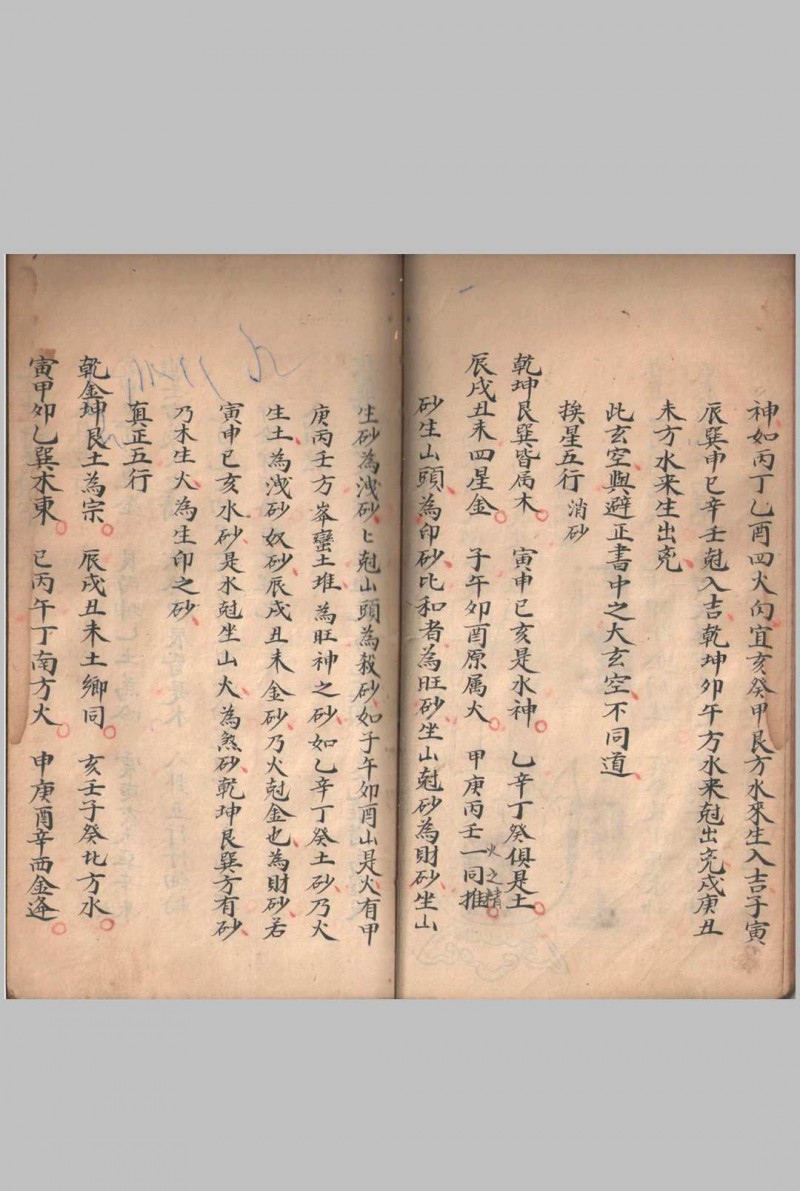 神如丙丁乙酉四火向宜亥癸甲艮方水來生入吉子寅
辰巽申巳辛壬尅入吉乾坤卯午方水来尅出兇戍庚丑
未方水来生出兇
此玄空與避正書中之大玄空不同道
挨星五行 消砂
乾坤艮巽皆属木 寅申巳亥是水神 乙辛丁癸俱是土
辰戌丑未四星金 子午卯酉原属火 甲庚丙壬一同推
火之精
砂生山頭為印砂比和者為旺砂坐山尅砂為財砂坐山
生砂為洩砂匕尅山頭為殺砂如子午卯酉山是火有甲
庚丙壬方峯巒土堆為旺神之砂如乙辛丁癸土砂乃火
生土為洩砂奴砂辰戌丑未金砂乃火尅金也為財砂若
寅申巳亥水砂是水尅坐山火為煞砂乾坤艮巽方有砂
乃木生火為生印之砂
真正五行
乾金坤艮土為宗 辰戌丑未土鄉同 亥壬子癸北方水
寅甲卯乙巽木東 巳丙午丁南方火 申庚酉辛西金逢